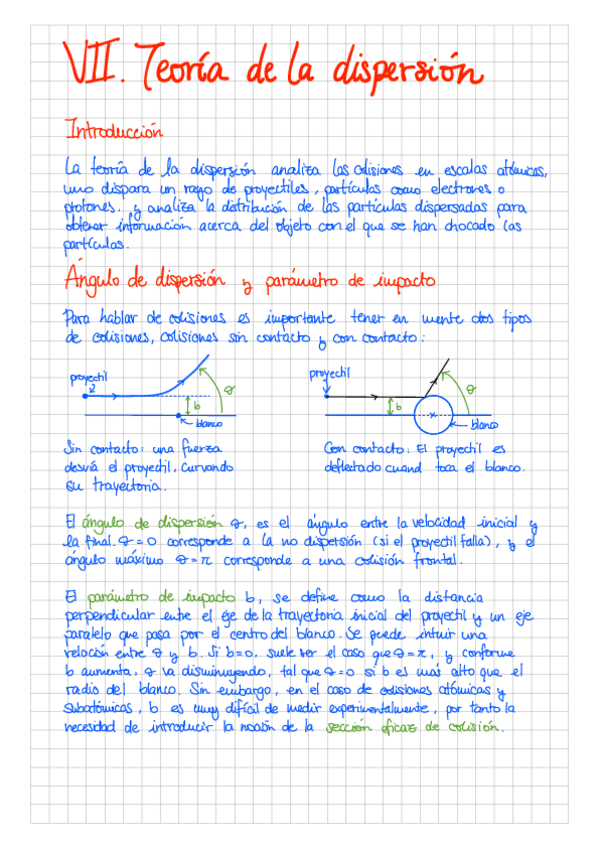 VII. Teoría de la dispersión
Introducción
La teoría de la dispersión analiza las colisiones en escalas atómicas,
uno dispara un rayo de proyectiles, partículas como electrones o
protones, y analiza la distribución de las partículas dispersadas para
obtener información acerca del objeto con el que se han chocado las
partículas.
Ángulo de dispersión y parámetro de impacto
Para hablar de colisiones es importante tener en mente dos tipos
de colisiones, colisiones sin contacto y con contacto:
proyectil
θ
b
blanco
proyectil
θ
b
blanco
Sin contacto: una fuerza
desvía el proyectil, curvando
su trayectoria.
Con contacto: El proyectil es
deflectado cuand toca el blanco.
El ángulo de dispersión θ, es el ángulo entre la velocidad inicial y
la final. θ=0 corresponde a la no dispersión (si el proyectil falla), y el
ángulo máximo θ=π corresponde a una colisión frontal.
El parámetro de impacto b, se define como la distancia
perpendicular entre el eje de la trayectoria inicial del proyectil y un eje
paralelo que pasa por el centro del blanco. Se puede intuir una
relación entre θ y b. Si b=0, suele ser el caso que θ=π, y conforme
b aumenta, θ va disminuyendo, tal que θ=0 si b es más alto que el
radio del blanco. Sin embargo, en el caso de colisiones atómicas y
subatómicas, b es muy difícil de medir experimentalmente, por tanto la
necesidad de introducir la noción de la sección eficaz de colisión.